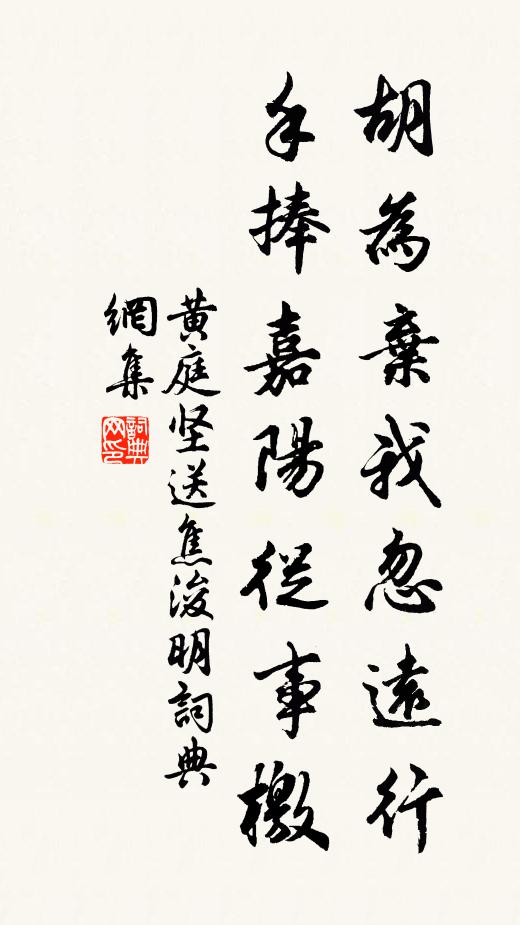 胡為棄我忽遠行
手捧嘉陽從事檄
黄庭坚送焦浚明詞典
網集
詞典網印